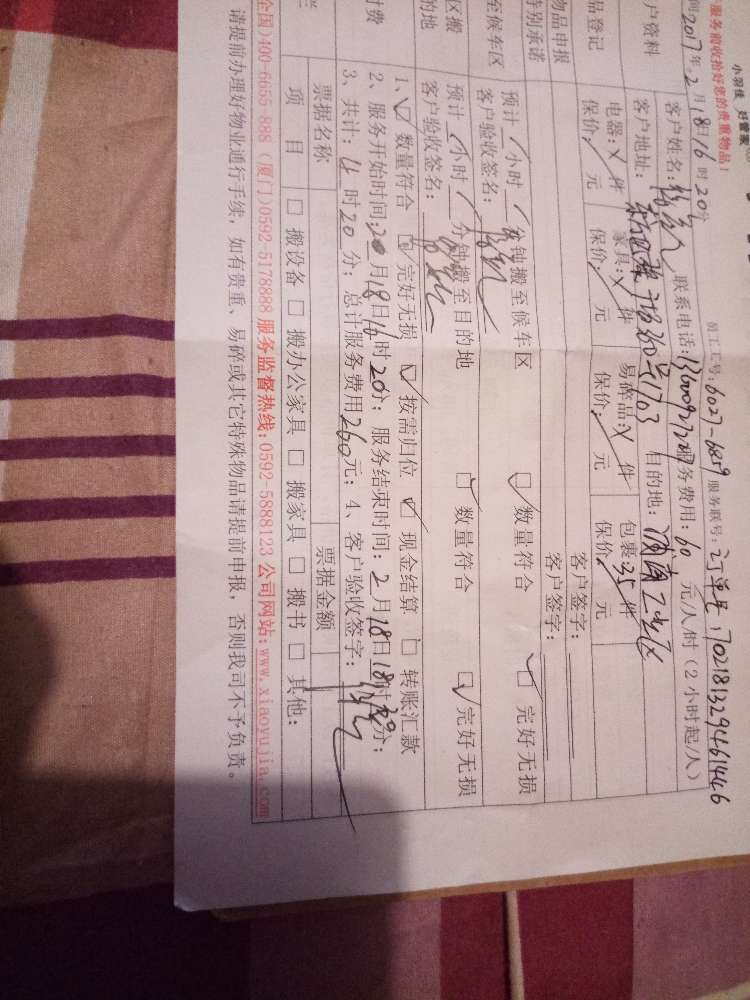 小羽佳 好管家
服务前收拾好您的贵重物品!
间2017年2月18日16时20分 员工工号:6027-6859 服务联号:订单号:7021813294461446
户资料 客户姓名: 联系电话: 服务费用:60元/人/时(2小时起/人)
客户地址: 360号1703 目的地: 工业区
品登记 电器:X件 家具:X件 易碎品:X件 包裹35件
保价:/元 保价:/元 保价:/元 保价:/元
物品申报 客户签字:
特别承诺 客户签字:
至候车区 预计/小时/分钟搬至候车区 ☑数量符合 ☑完好无损
客户验收签名:
区搬 预计/小时/分钟搬至目的地 ☑数量符合 ☑完好无损
的地 客户验收签名:
1、☑数量符合 ☑完好无损 ☑按需归位 ☑现金结算 □转账汇款
2、服务开始时间:2月18日16时20分;服务结束时间:2月18日18时30分;
付费 3、共计:4时20分;总计服务费用260元;4、客户验收签字:
票据名称 票据金额
项目 □搬设备 □搬办公家具 □搬家具 □搬书 □其他:
全国)400-6655-888 (厦门)0592-5178888 服务监督热线:0592-5888123 公司网站:www.xiaoyujia.com
请提前办理好物业通行手续,如有贵重、易碎或其它特殊物品请提前申报,否则我司不予负责。